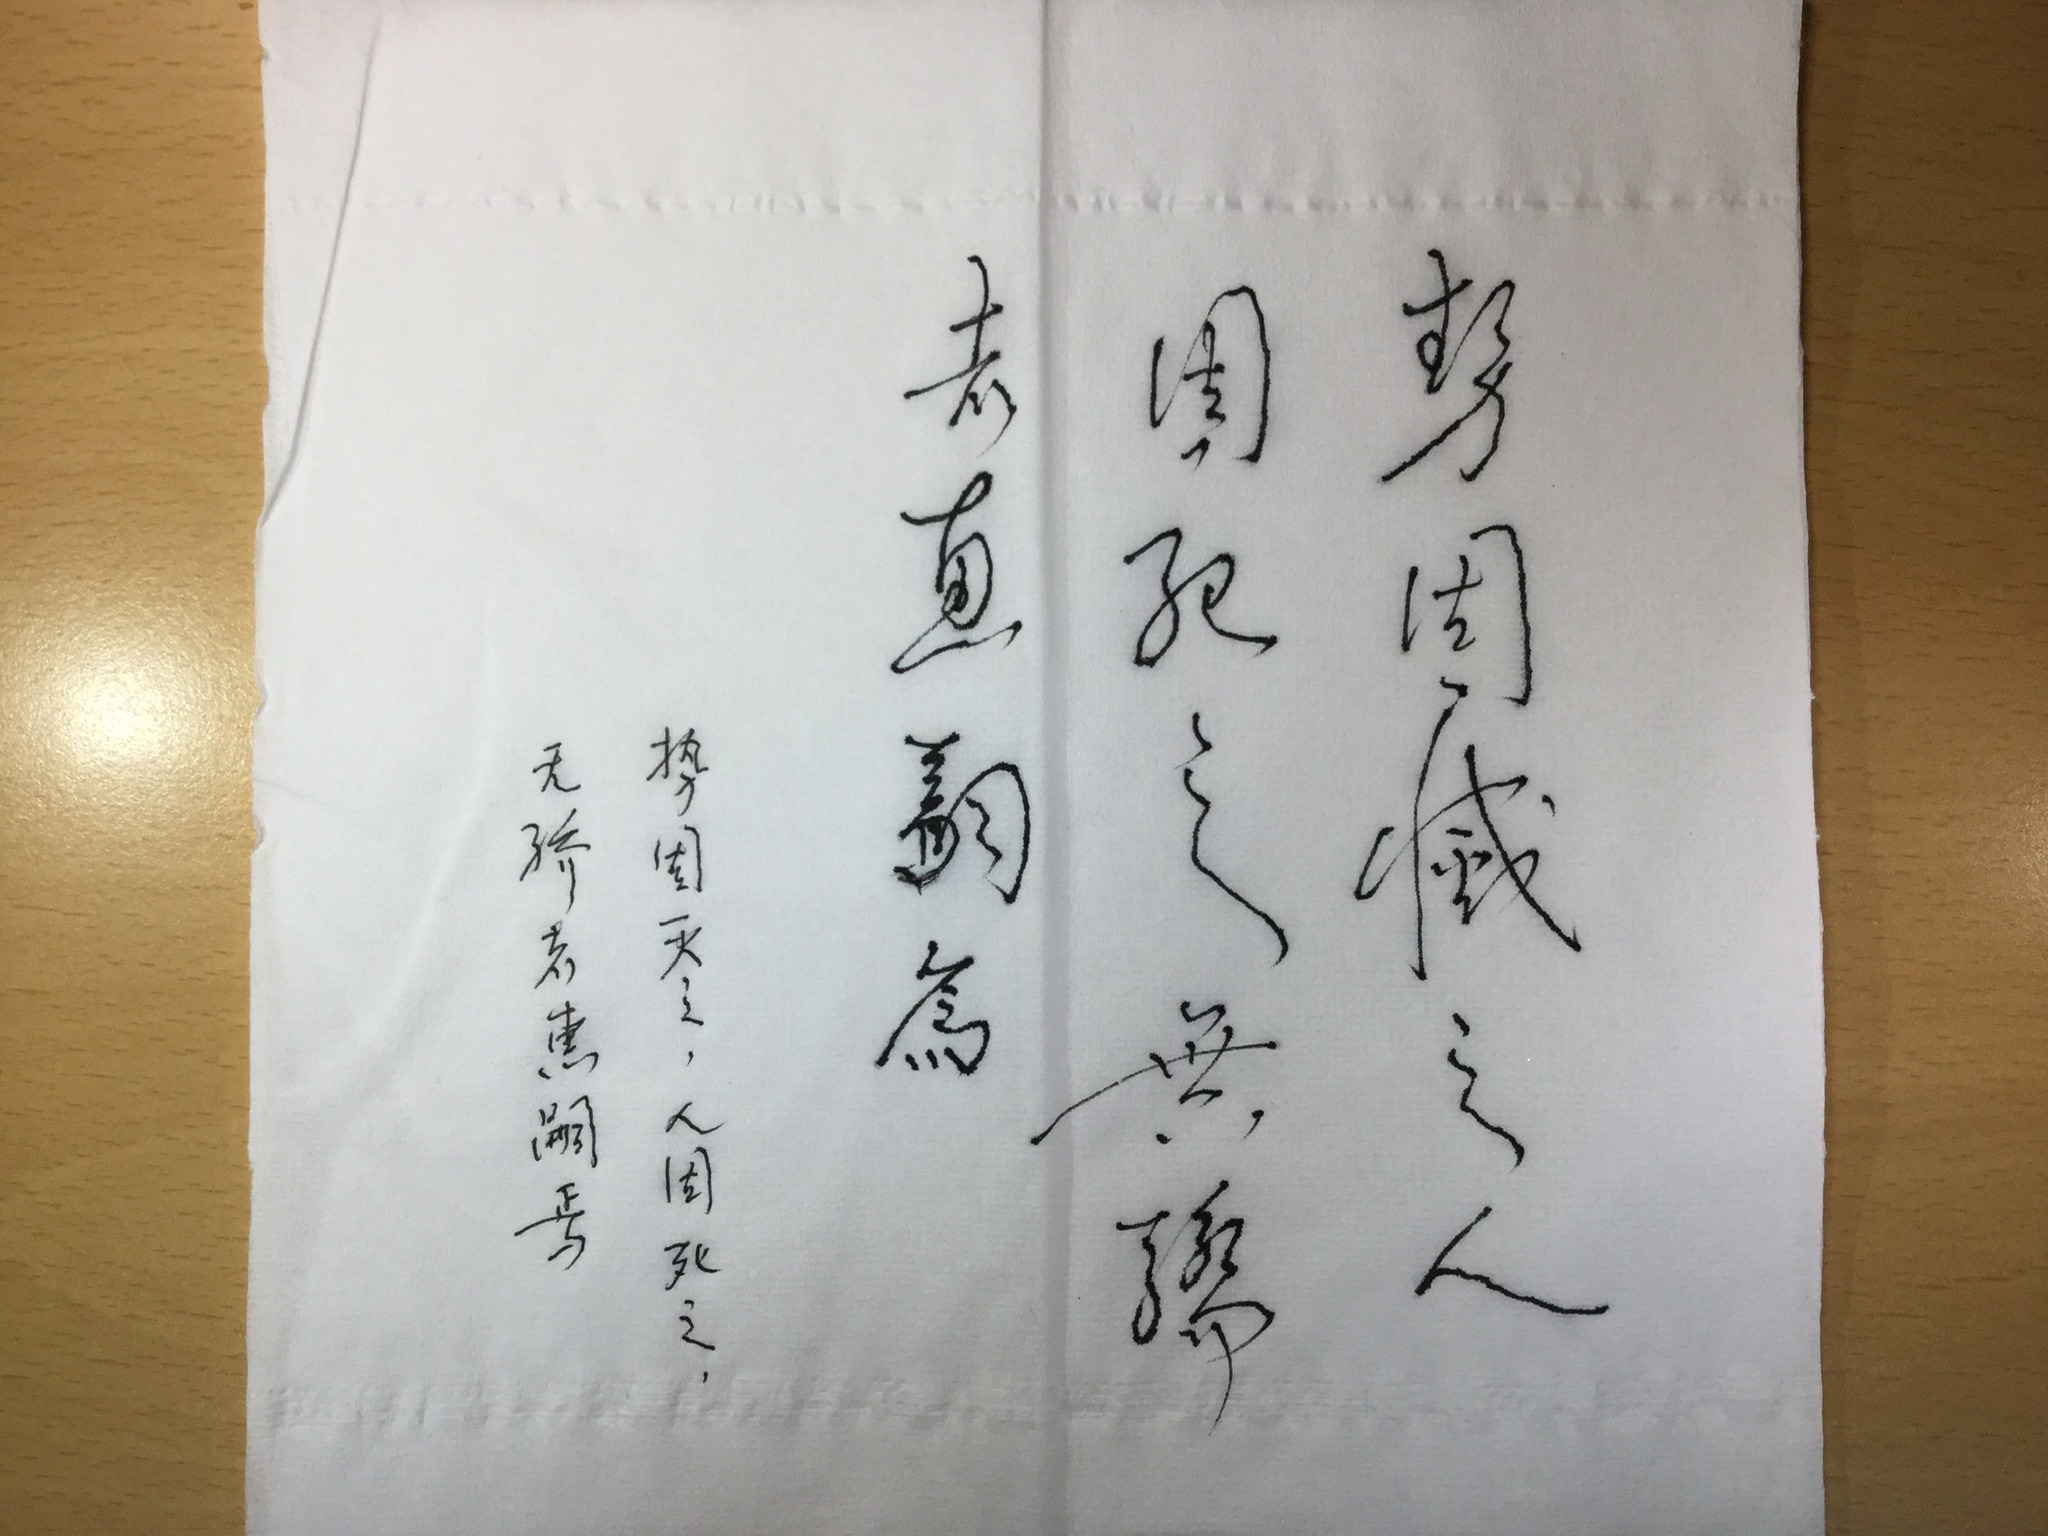 勢固滅之人
固死之無驕
者惠嗣焉
势固灭之，人固死之，
无骄者惠嗣焉